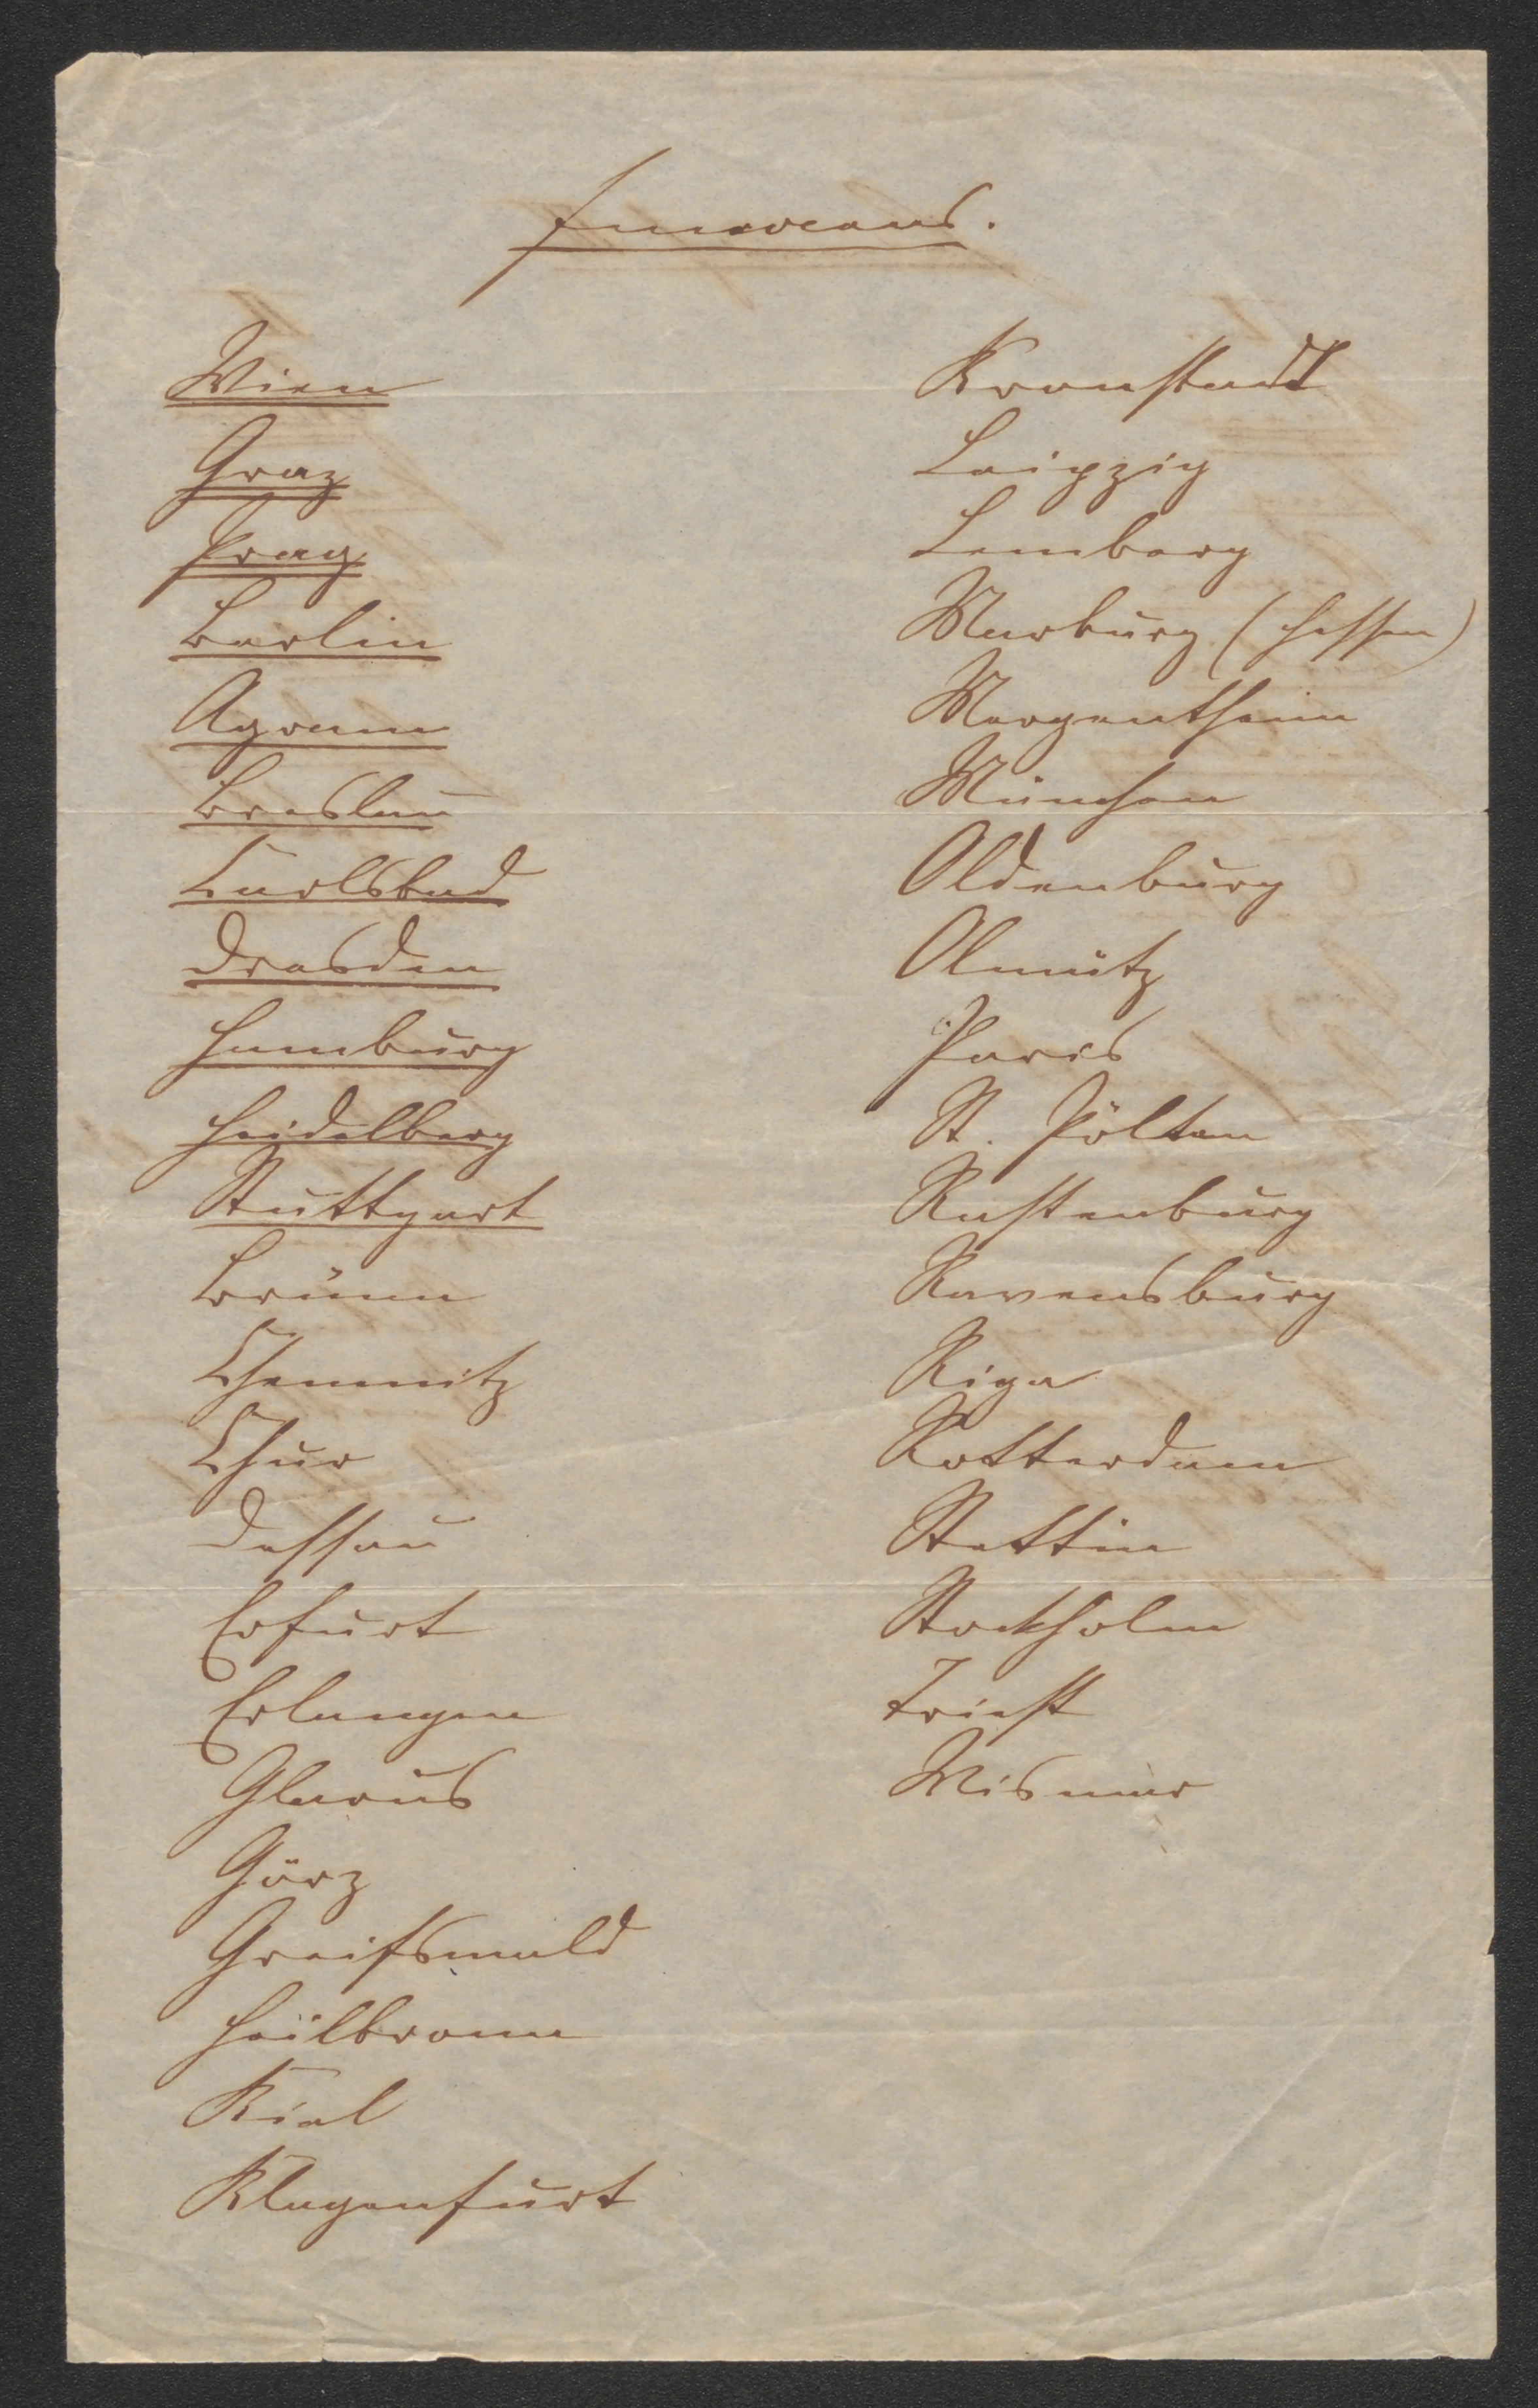 Wien
Graz
Prag
Berlin
Agram
Breslau
Carlsbad
Dresden
Hamburg
Heidelberg
Stuttgart
Brünn
Chemnitz
Chur
Dessau
Erfurt
Erlangen
Glarus
Görz
Greifswald
Heilbronn
Kiel
Klagenfurt
Kronstadt
Leipzig
Lemberg
Marburg (Hessen)
Mergentheim
München
Oldenburg
Olmütz
Paris
St. Pölten
Rastenburg
Ravensburg
Riga
Rotterdam
Stettin
Stockholm
Triest
Wismar